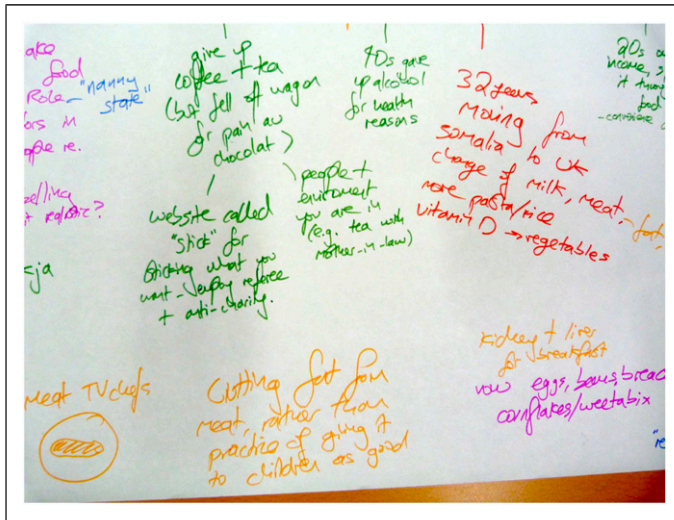 food
Role
"nanny
state"
give up
coffee + tea
(but fell off wagon
for pain au
chocolat)
website called
"stick" for
sticking what you
want - enjoy referee
+ anti-charity.
people +
enviroment
you are in
(e.g. tea with
mother-in-law)
40s gave
up alcohol
for health
reasons
32 years
moving from
somalia to UK
change of milk, meat,
more pasta/rice
vitamin D → vegetables
20s
income,
food
realistic?
meat TV chefs
Cutting fat from
meat, rather than
practice of giving it
to children as good
kidney + liver
for breakfast
now eggs, beans, bread
cornflakes/weetabix